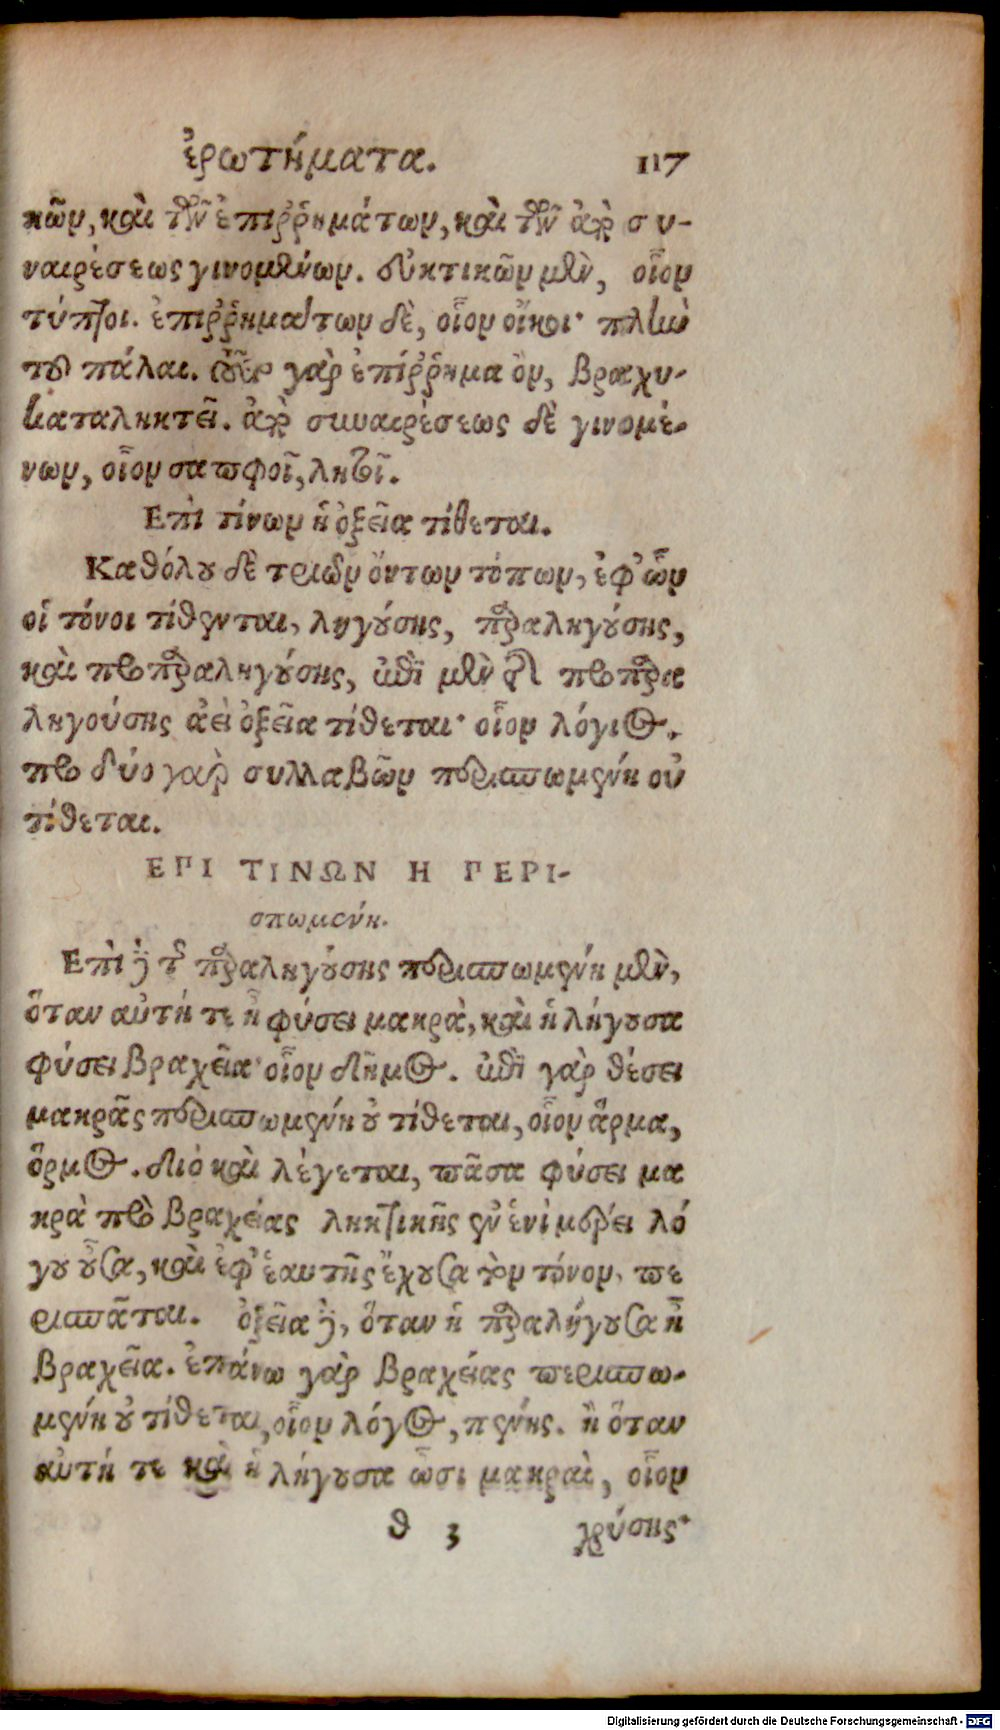 ἐρωτήματα. 117
κῶν, καὶ τῶν ἐπιῤῥημάτων, καὶ τῶν ἀπὸ συ-
ναιρέσεως γινομένων. εὐκτικῶν μὲν, οἷον
τύπτοι. ἐπιῤῥημάτων δὲ, οἷον οἴκοι· πλὴν
τοῦ πάλαι. γὰρ ἐπίῤῥημα ὂν, βραχυ-
καταληκτεῖ. ἀπὸ συναιρέσεως δὲ γινομέ-
νων, οἷον σαπφοῖ, λητοῖ.
Επὶ τίνων ἡ ὀξεῖα τίθεται.
Καθόλου δὲ τριῶν ὄντων τόπων, ἐφ' ὧν
οἱ τόνοι τίθενται, ληγούσης, παραληγούσης,
καὶ προπαραληγούσης, ἐπὶ μὲν τῆς προπαρα
ληγούσης ἀεὶ ὀξεῖα τίθεται· οἷον λόγιος.
πρὸ δύο γὰρ συλλαβῶν περισπωμένη οὐ
τίθεται.
ΕΠΙ ΤΙΝΩΝ Η ΠΕΡΙ-
σπωμένη.
Επὶ δὲ τῆς παραληγούσης περισπωμένη μὲν,
ὅταν αὐτή τε ᾖ φύσει μακρὰ, καὶ ἡ λήγουσα
φύσει βραχεῖα· οἷον δῆμος. ἐπὶ γὰρ θέσει
μακρᾶς περισπωμένη οὐ τίθεται, οἷον ἅρμα,
ὅρμος. διὸ καὶ λέγεται, πᾶσα φύσει μα
κρὰ πρὸ βραχείας ληκτικῆς ἐν ἑνὶ μέρει λό
γου οὖσα, καὶ ἐφ' ἑαυτῆς ἔχουσα τὸν τόνον, πε
ρισπᾶται. ὀξεῖα δὲ, ὅταν ἡ παραλήγουσα ᾖ
βραχεῖα. ἐπάνω γὰρ βραχείας περισπω-
μένη οὐ τίθεται, οἷον λόγος, πένης. ἢ ὅταν
αὐτή τε καὶ ἡ λήγουσα ὦσι μακραὶ, οἷον
θ 3 χρύσης·
Digitalisierung gefördert durch die Deutsche Forschungsgemeinschaft - DFG